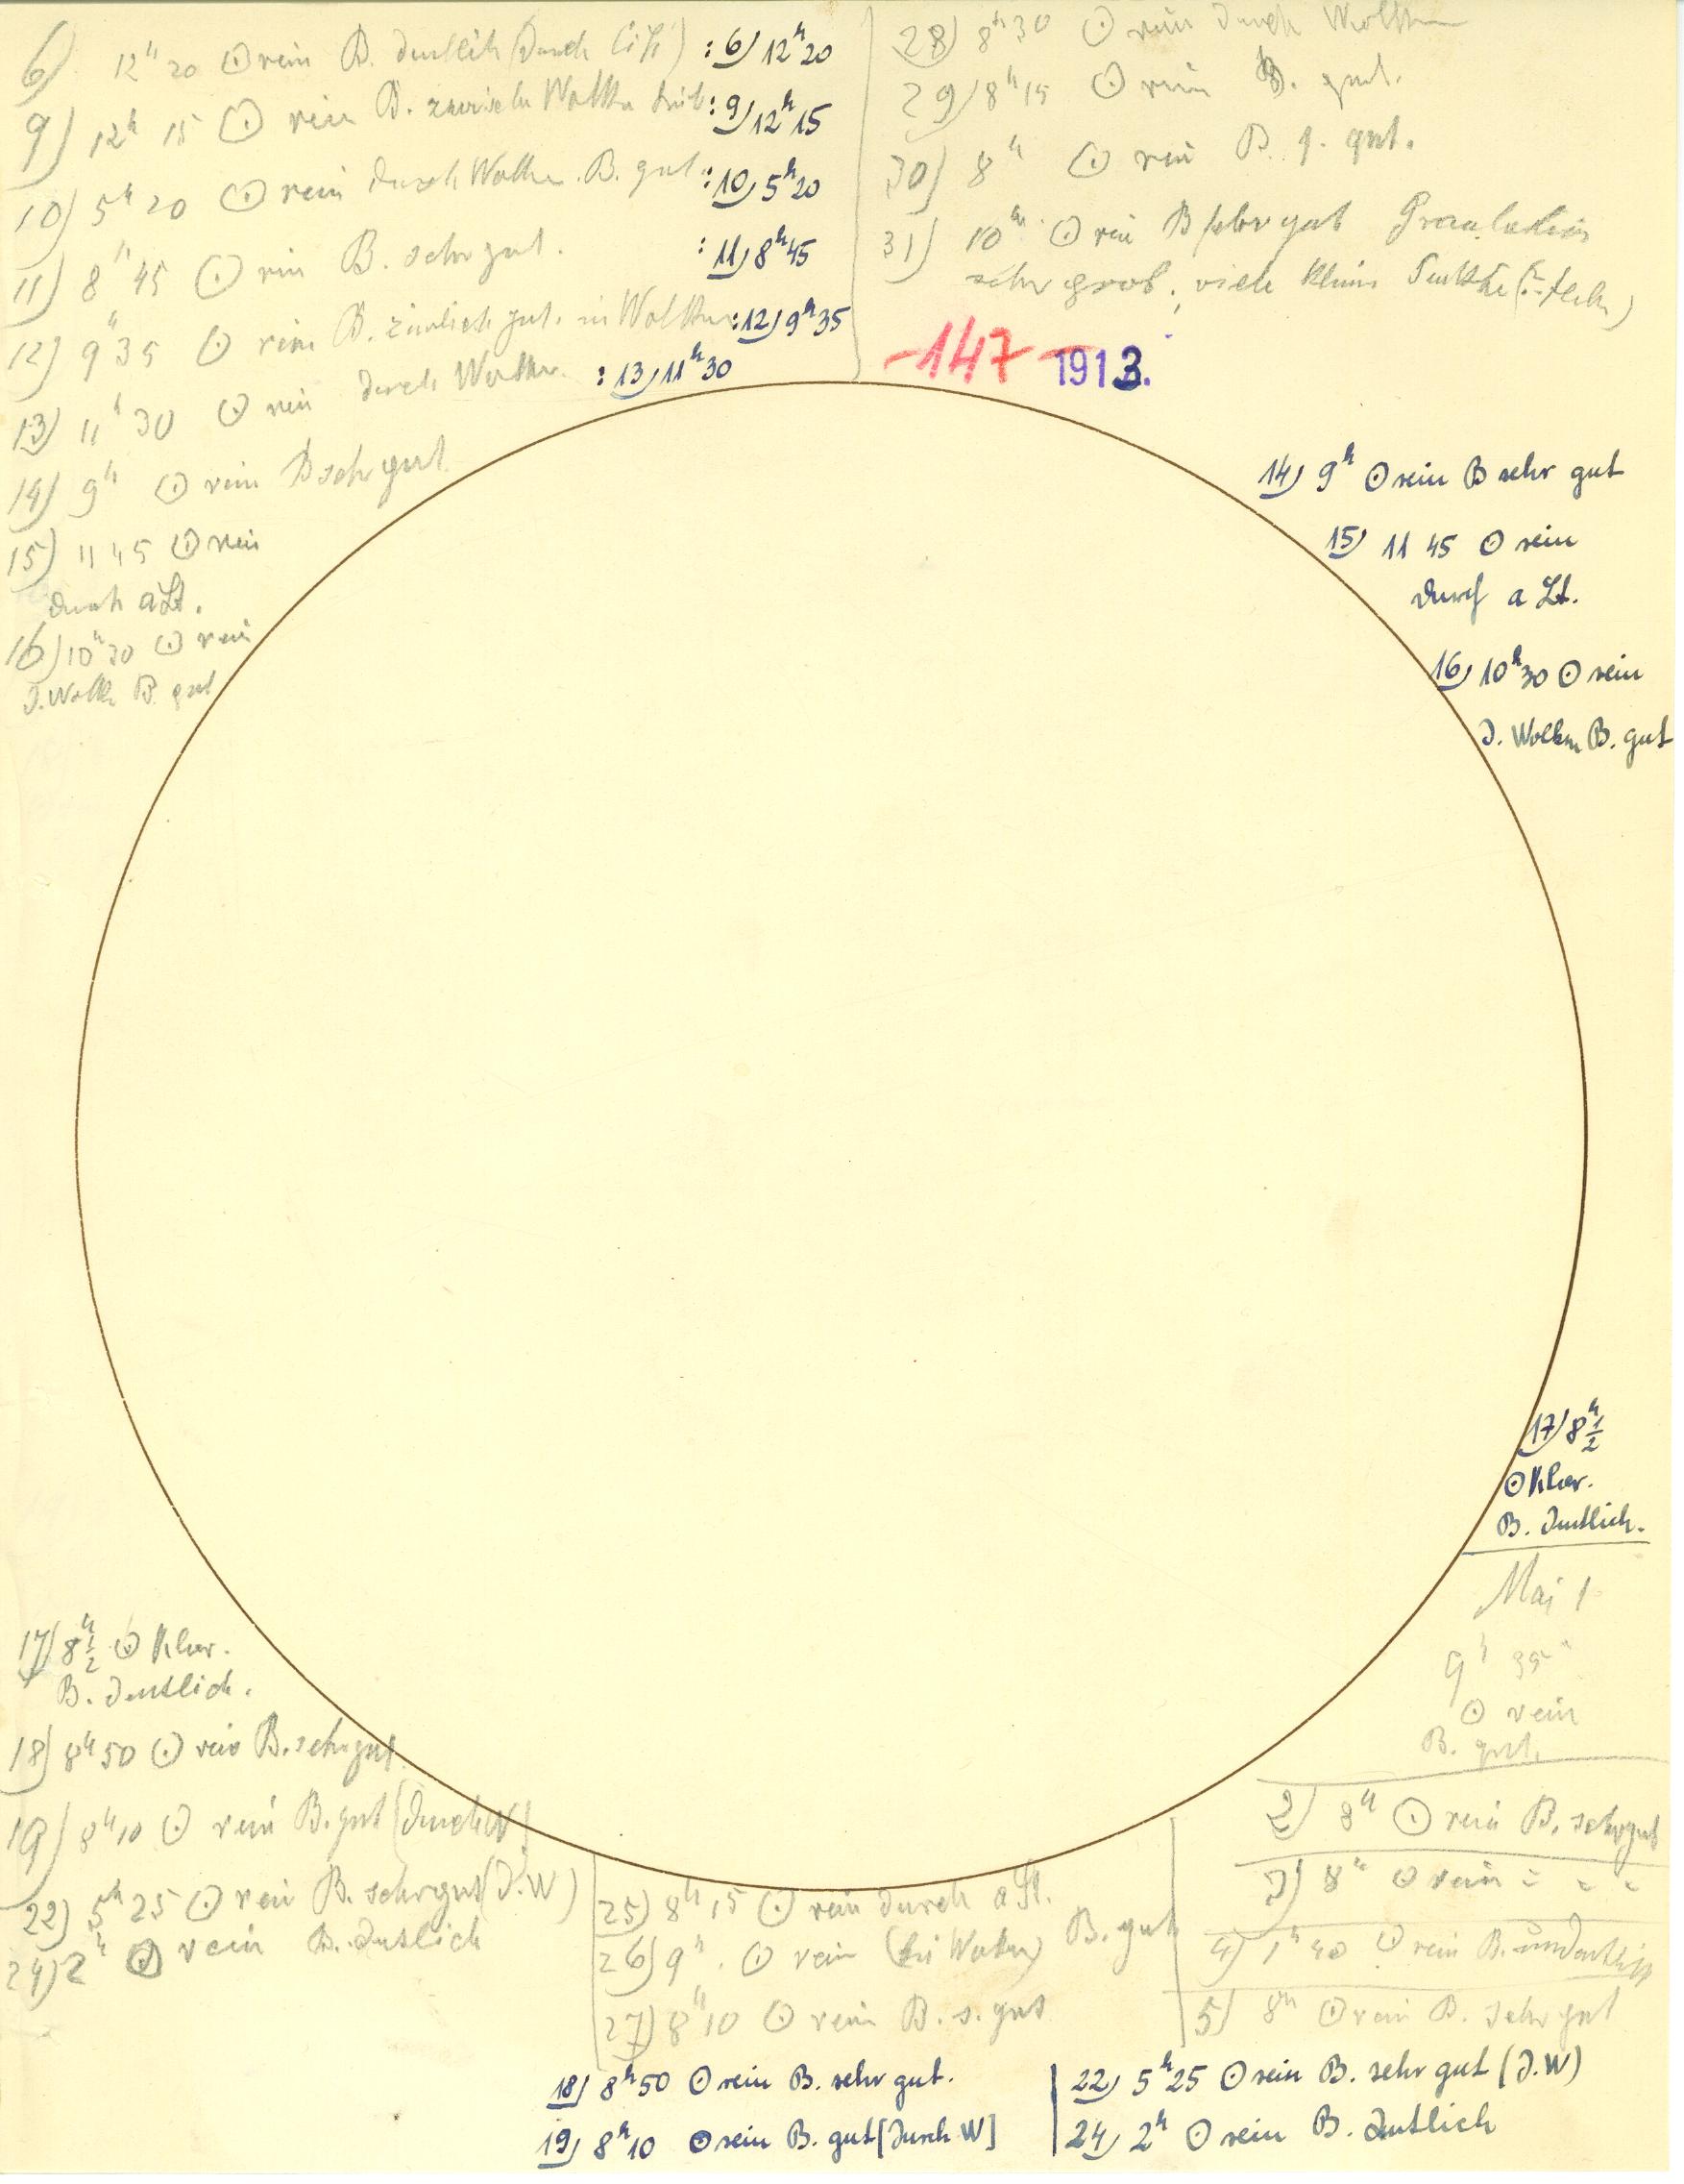 6) 12h 20 ⊙ rein B. deutlich (durch : 6) 12h20
9) 12h 15 ⊙ rein B. zwischen Wolken : 9) 12h15
10) 5h 20 ⊙ rein durch Wolken. B. gut. : 10) 5h20
11) 8h 45 ⊙ rein B. sehr gut. : 11) 8h45
12) 9h 35 ⊙ rein B. ziemlich gut. in Wolken : 12) 9h35
13) 11h 30 ⊙ rein durch Wolken. : 13) 11h30
14) 9h ⊙ rein B sehr gut
15) 11 45 ⊙ rein
durch a St.
16) 10h 30 ⊙ rein
D. Wolken B. gut
28) 8h 30 ⊙ rein durch Wolken
29) 8h 15 ⊙ rein B. gut.
30) 8h ⊙ rein B. g. gut.
31) 10h ⊙ rein B sehr gut Granulation
sehr grob, viele kleine
147 1913.
14) 9h ⊙ rein B sehr gut
15) 11 45 ⊙ rein
durch a St.
16) 10h30 ⊙ rein
D. Wolken B. gut
17) 8h ½
⊙ klar.
B. deutlich.
Mai 1
9h 35
⊙ rein
B. gut.
2) 8h ⊙ rein B. sehr gut
3) 8h ⊙ rein " " "
4) 1h 40 ⊙ rein B. undeutlich
5) 8h ⊙ rein B. sehr gut
17) 8h ½ ⊙ klar.
B. deutlich.
18) 8h 50 ⊙ rein B. sehr gut.
19) 8h 10 ⊙ rein B. gut [durch W]
22) 5h 25 ⊙ rein B. sehr gut (D. W)
24) 2h ⊙ rein B. deutlich
25) 8h 15 ⊙ rein durch a St.
26) 9h. ⊙ rein (bei Wolken) B. gut
27) 8h 10 ⊙ rein B. s. gut
18) 8h50 ⊙ rein B. sehr gut.
19) 8h10 ⊙ rein B. gut [durch W]
22) 5h25 ⊙ rein B. sehr gut (D. W)
24) 2h ⊙ rein B. deutlich